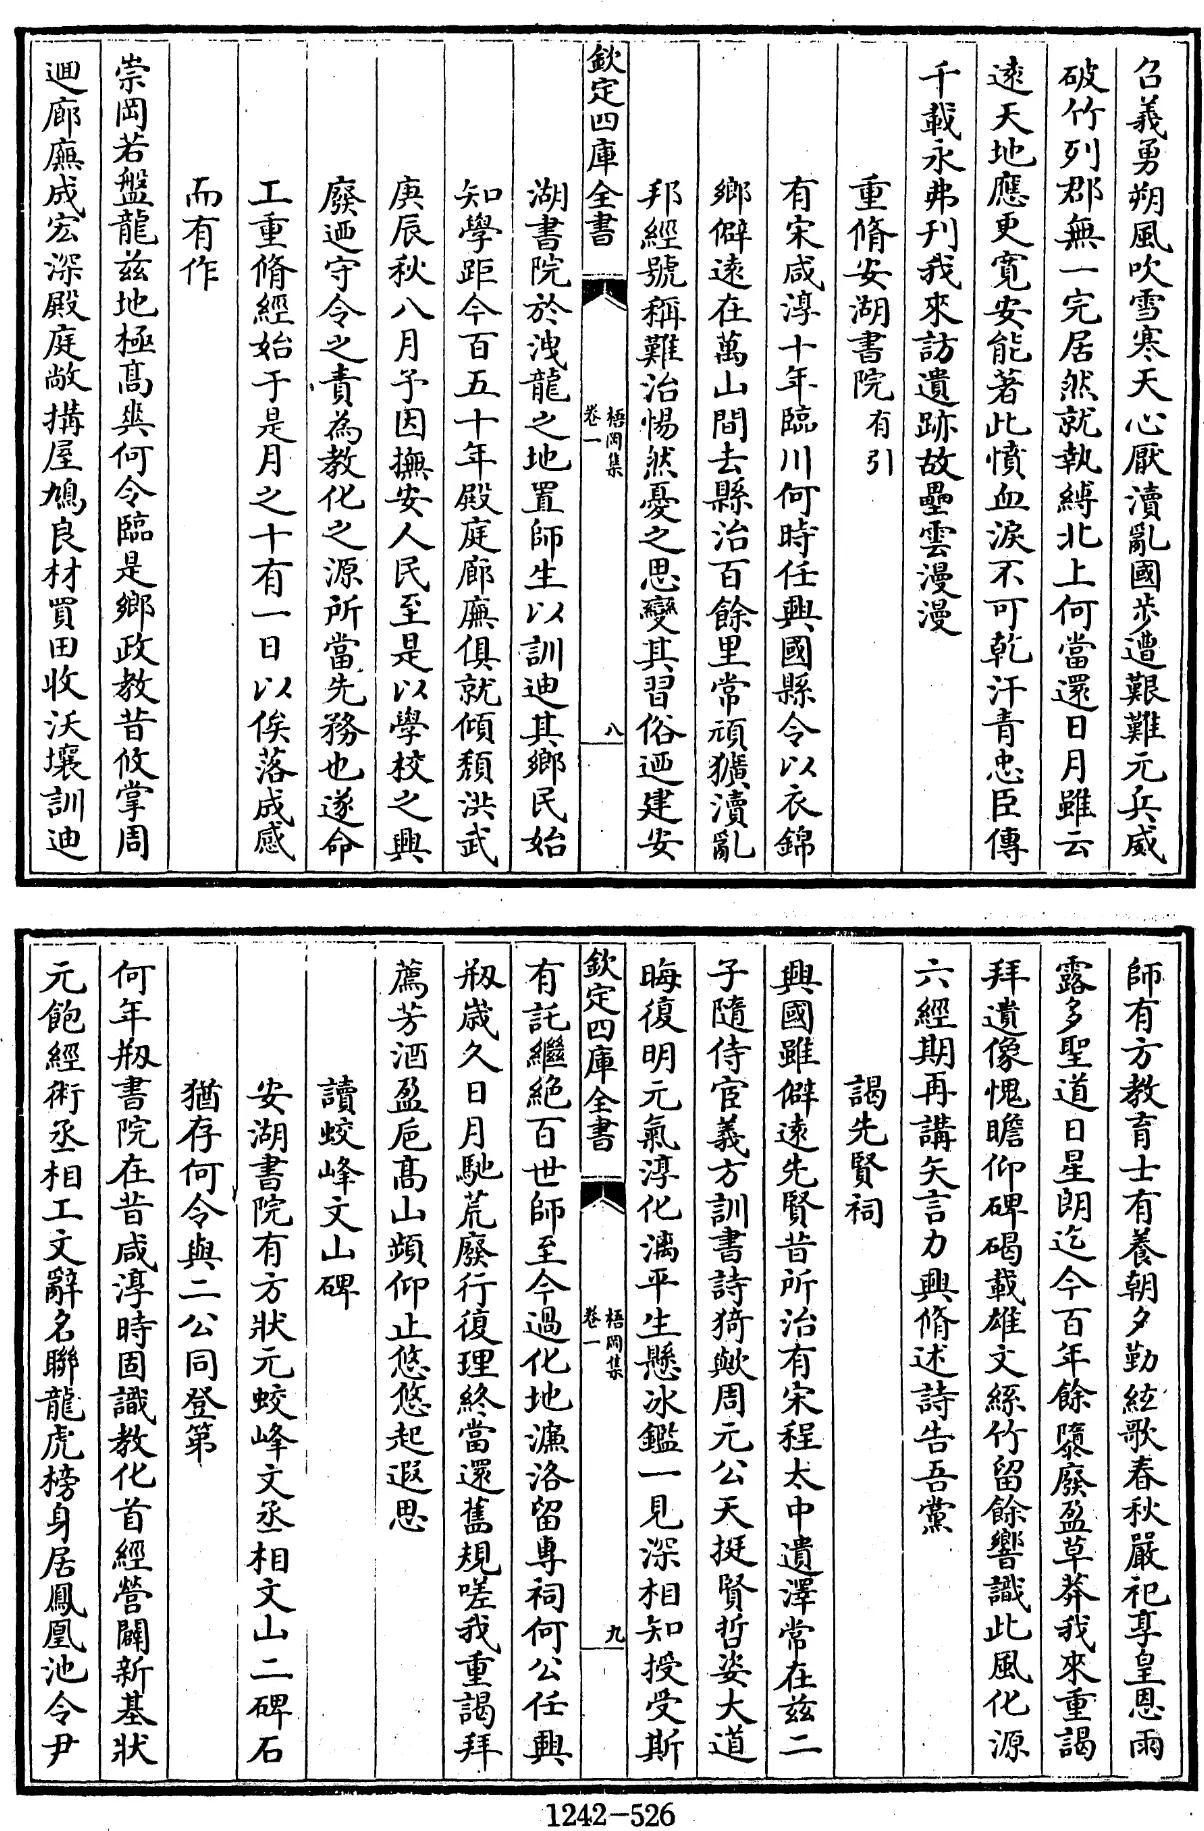 召義勇朔風吹雪寒天心厭瀆亂國步遭艱難元兵威
破竹列郡無一完居然就執縛北上何當還日月雖云
遠天地應更寬安能著此憤血淚不可乾汗青忠臣傳
千載永弗刋我來訪遺跡故壘雲漫漫
重脩安湖書院有引
有宋咸淳十年臨川何時任興國縣令以衣錦
鄉僻遠在萬山間去縣治百餘里常頑獷瀆亂
邦經號稱難治惕然憂之思變其習俗迺建安
欽定四庫全書
梧岡集
卷一
八
湖書院於洩龍之地置師生以訓迪其鄉民始
知學距今百五十年殿庭廊廡俱就傾頹洪武
庚辰秋八月予因撫安人民至是以學校之興
廢迺守令之責為教化之源所當先務也遂命
工重脩經始于是月之十有一日以俟落成感
而有作
崇岡若盤龍兹地極高爽何令臨是鄉政教昔攸掌周
迴廊廡成宏深殿庭敞搆屋鳩良材買田收沃壤訓迪
師有方教育士有養朝夕勤絃歌春秋嚴祀享皇恩雨
露多聖道日星朗迄今百年餘隳廢盈草莽我來重謁
拜遺像愧瞻仰碑碣載雄文絲竹留餘響識此風化源
六經期再講矢言力興脩述詩告吾黨
謁先賢祠
興國雖僻遠先賢昔所治有宋程太中遺澤常在兹二
子隨侍宦義方訓書詩猗歟周元公天挺賢哲姿大道
晦復明元氣淳化漓平生懸冰鑑一見深相知授受斯
欽定四庫全書
梧岡集
卷一
九
有託繼絶百世師至今過化地濂洛留專祠何公任興
剏歲久日月馳荒廢行復理終當還舊規嗟我重謁拜
薦芳酒盈巵高山頻仰止悠悠起遐思
讀蛟峰文山碑
安湖書院有方狀元蛟峰文丞相文山二碑石
猶存何令與二公同登第
何年剏書院在昔咸淳時固識教化首經營闢新基狀
元飽經術丞相工文辭名聯龍虎榜身居鳳凰池令尹
1242-526